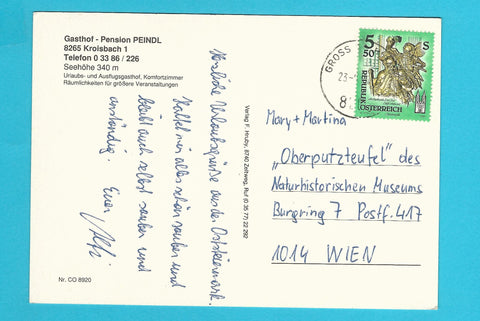 Gasthof - Pension PEINDL
8265 Kroisbach 1
Telefon 0 33 86 / 226
Seehöhe 340 m
Urlaubs- und Ausflugsgasthof, Komfortzimmer
Räumlichkeiten für größere Veranstaltungen
Herzliche Urlaubsgrüße aus der Oststeiermark.
Haltet mir alles schön sauber und
bleibt auch selbst sauber und
anständig. Euer
Nr. CO 8920
Verlag F. Hruby, 8740 Zeltweg, Ruf (0 35 77) 22 292
GROSS
23
8
5 50 S
REPUBLIK
ÖSTERREICH
Mary + Martina
"Oberputzteufel" des
Naturhistorischen Museums
Burgring 7 Postf. 417
1014 WIEN